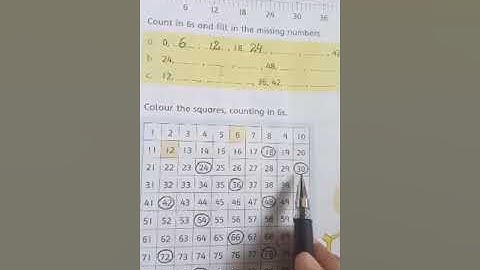 6 12 18 24 30 36
Count in 6s and fill in the missing numbers
a 0, 6 12 18, 24
b 24, 48,
c 12, 36, 42,
Colour the squares, counting in 6s.
1 2 3 4 5 6 7 8 9 10
11 12 13 14 15 16 17 18 19 20
21 22 23 24 25 26 27 28 29 30
31 32 33 34 35 36 37 38
41 42 43 44 45 46 47 48 49
51 52 53 54 55 56 57 58 59
61 62 63 64 65 66 67 68
71 72 73 74 75 76 77 78